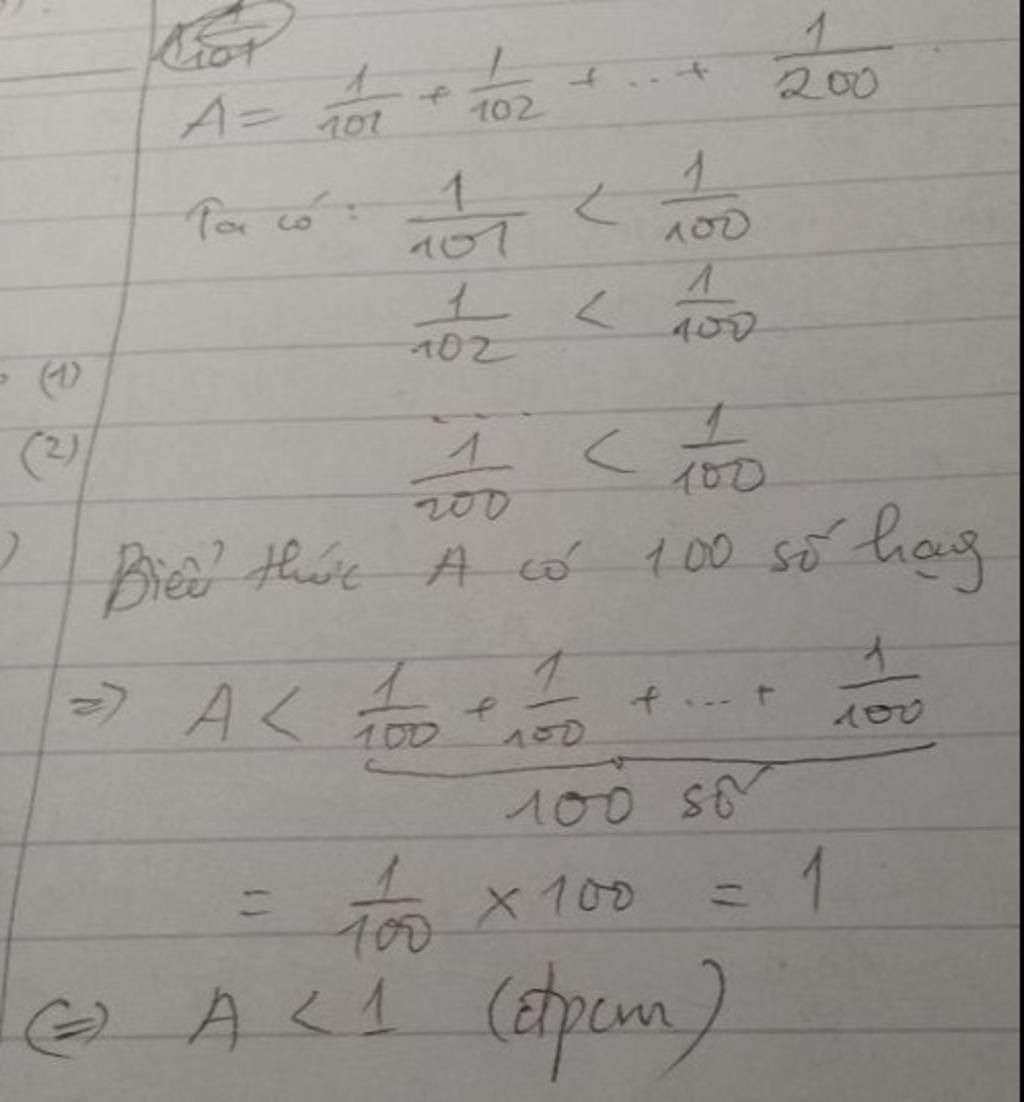 A = 1/101 + 1/102 + ... + 1/200
Ta có: 1/101 < 1/100
1/102 < 1/100
(1)
....
(2)
1/200 < 1/100
Biểu thức A có 100 số hạng
=> A < 1/100 + 1/100 + ... + 1/100
100 số
= 1/100 × 100 = 1
(=) A < 1 (đpcm)